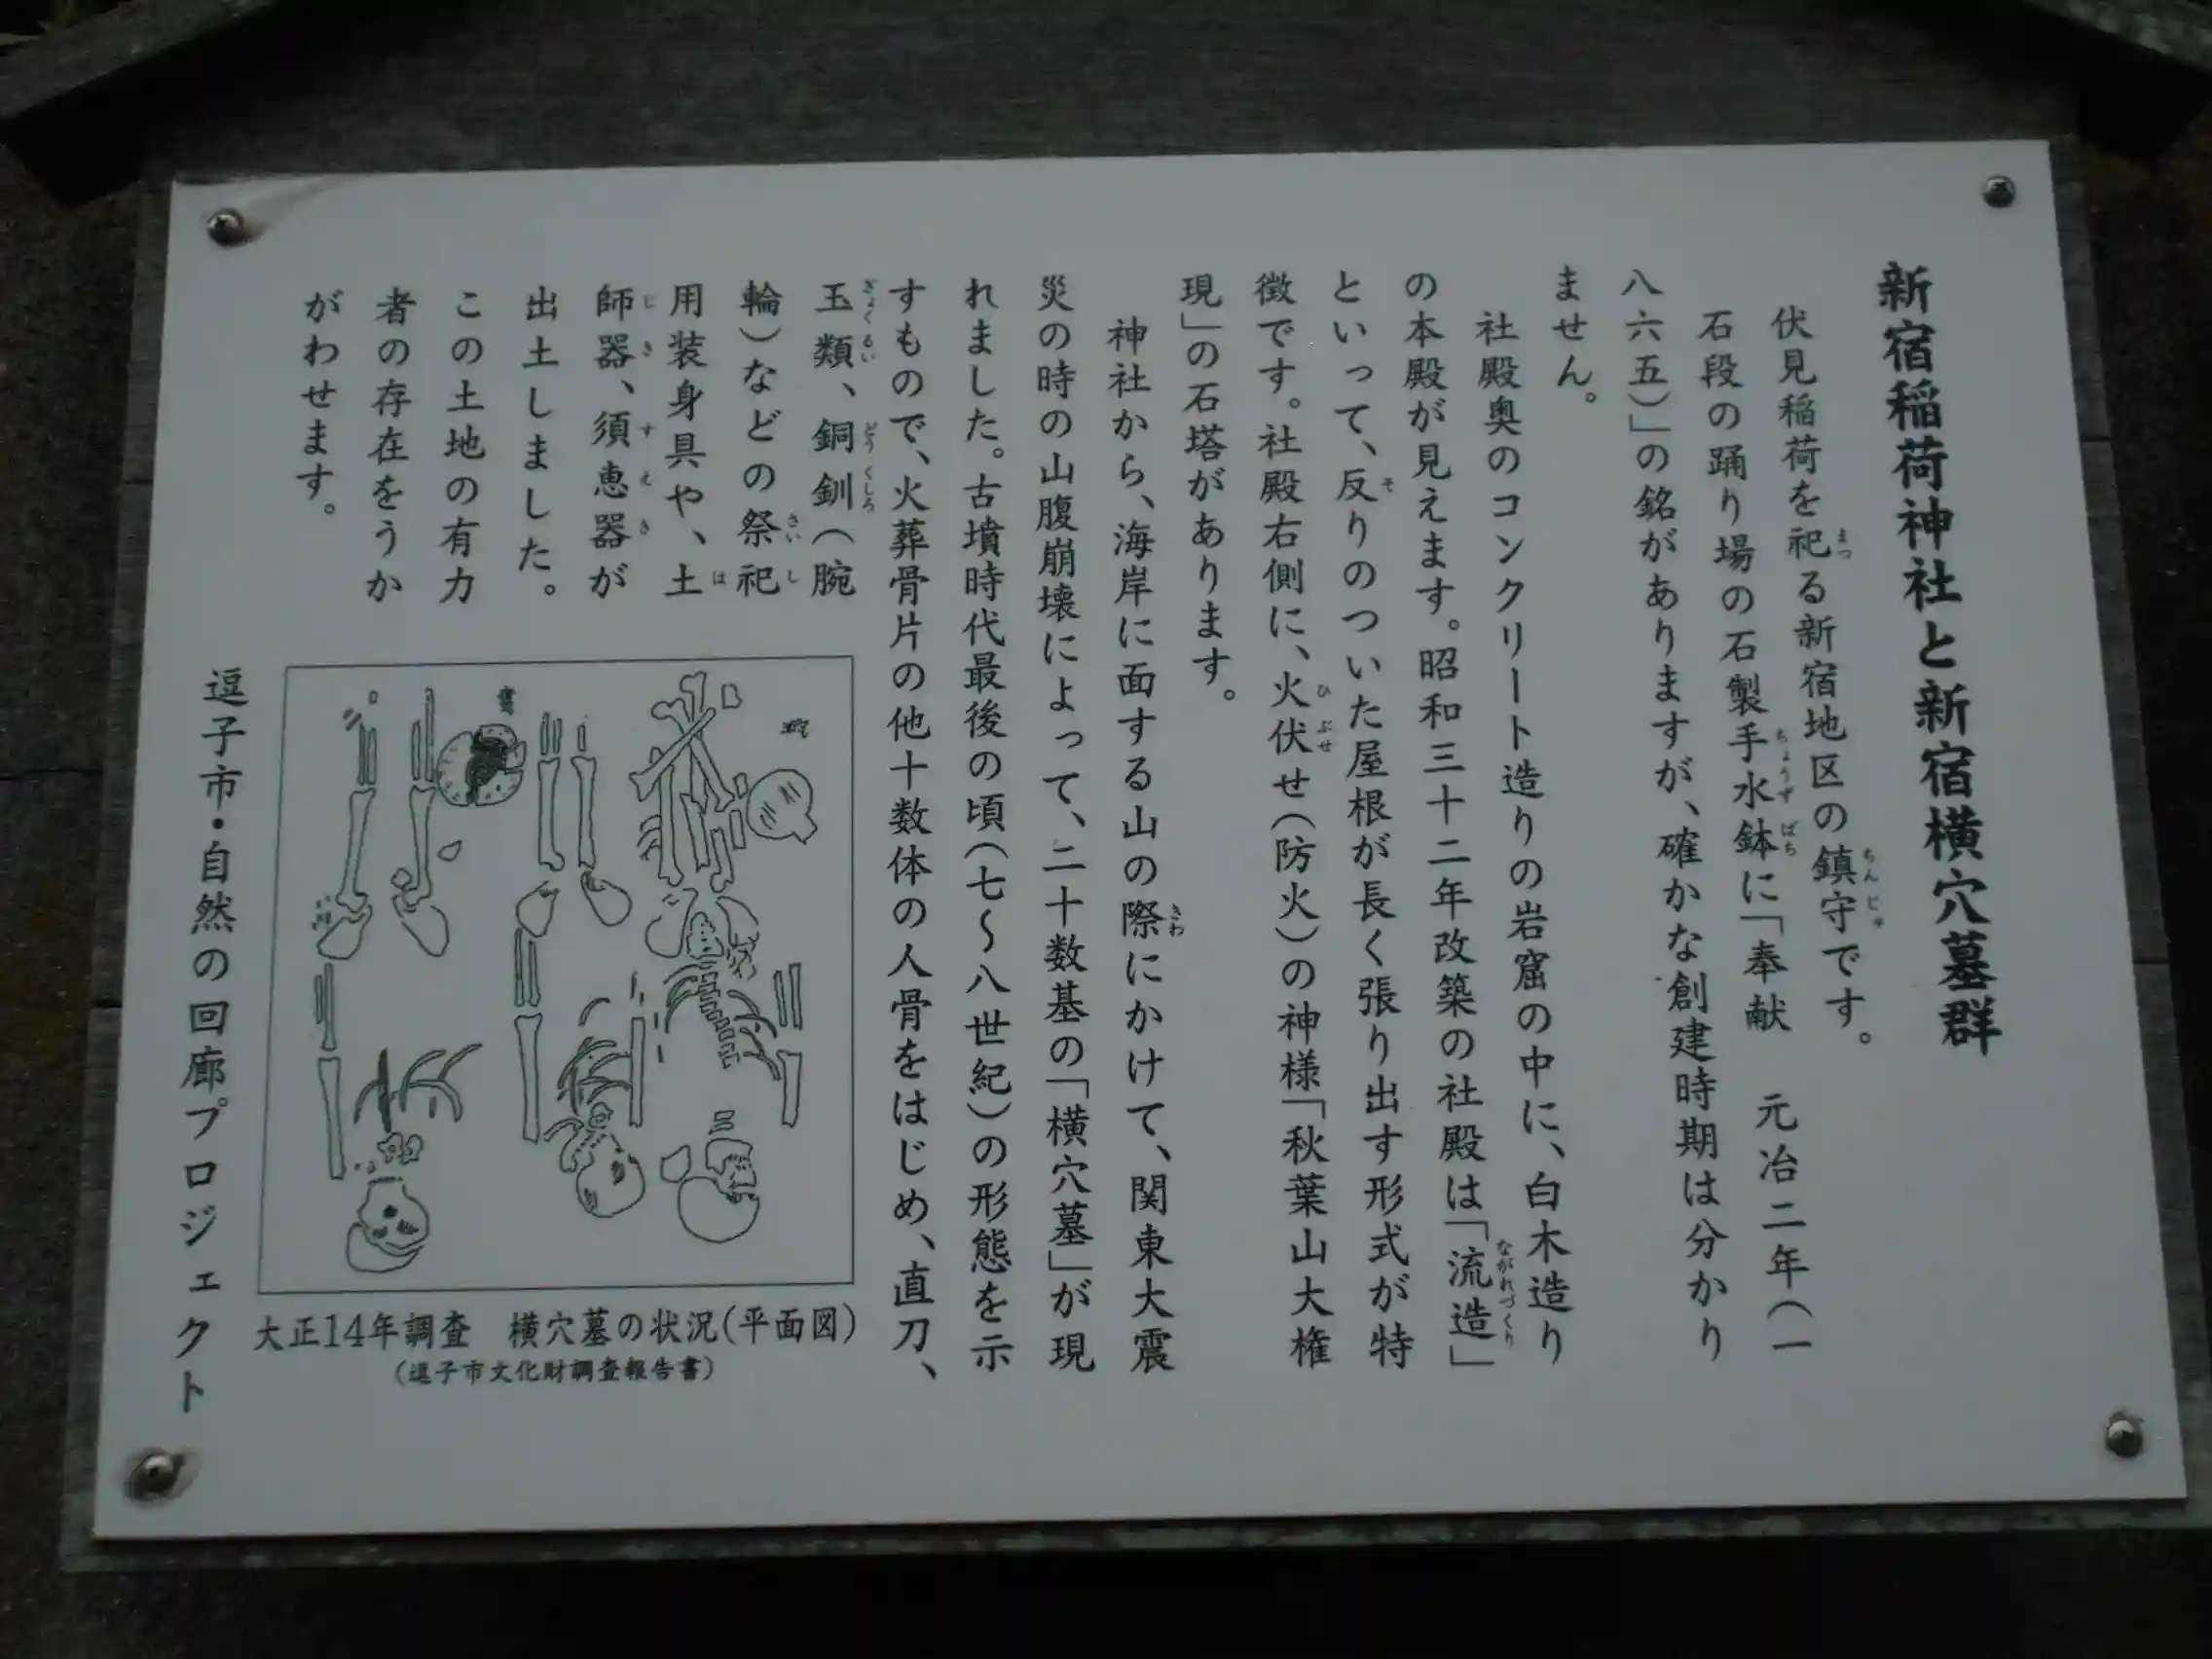 新宿稲荷神社と新宿横穴墓群
伏見稲荷を祀る新宿地区の鎮守です。
石段の踊り場の石製手水鉢に「奉献　元治二年(一
八六五)」の銘がありますが、確かな創建時期は分かり
ません。
社殿奥のコンクリート造りの岩窟の中に、白木造り
の本殿が見えます。昭和三十二年改築の社殿は「流造」
といって、反りのついた屋根が長く張り出す形式が特
徴です。社殿右側に、火伏せ(防火)の神様「秋葉山大権
現」の石塔があります。
神社から、海岸に面する山の際にかけて、関東大震
災の時の山腹崩壊によって、二十数基の「横穴墓」が現
れました。古墳時代最後の頃(七〜八世紀)の形態を示
すもので、火葬骨片の他十数体の人骨をはじめ、直刀、
玉類、銅釧(腕
輪)などの祭祀
用装身具や、土
師器、須恵器が
出土しました。
この土地の有力
者の存在をうか
がわせます。
大正14年調査　横穴墓の状況(平面図)
(逗子市文化財調査報告書)
逗子市・自然の回廊プロジェクト